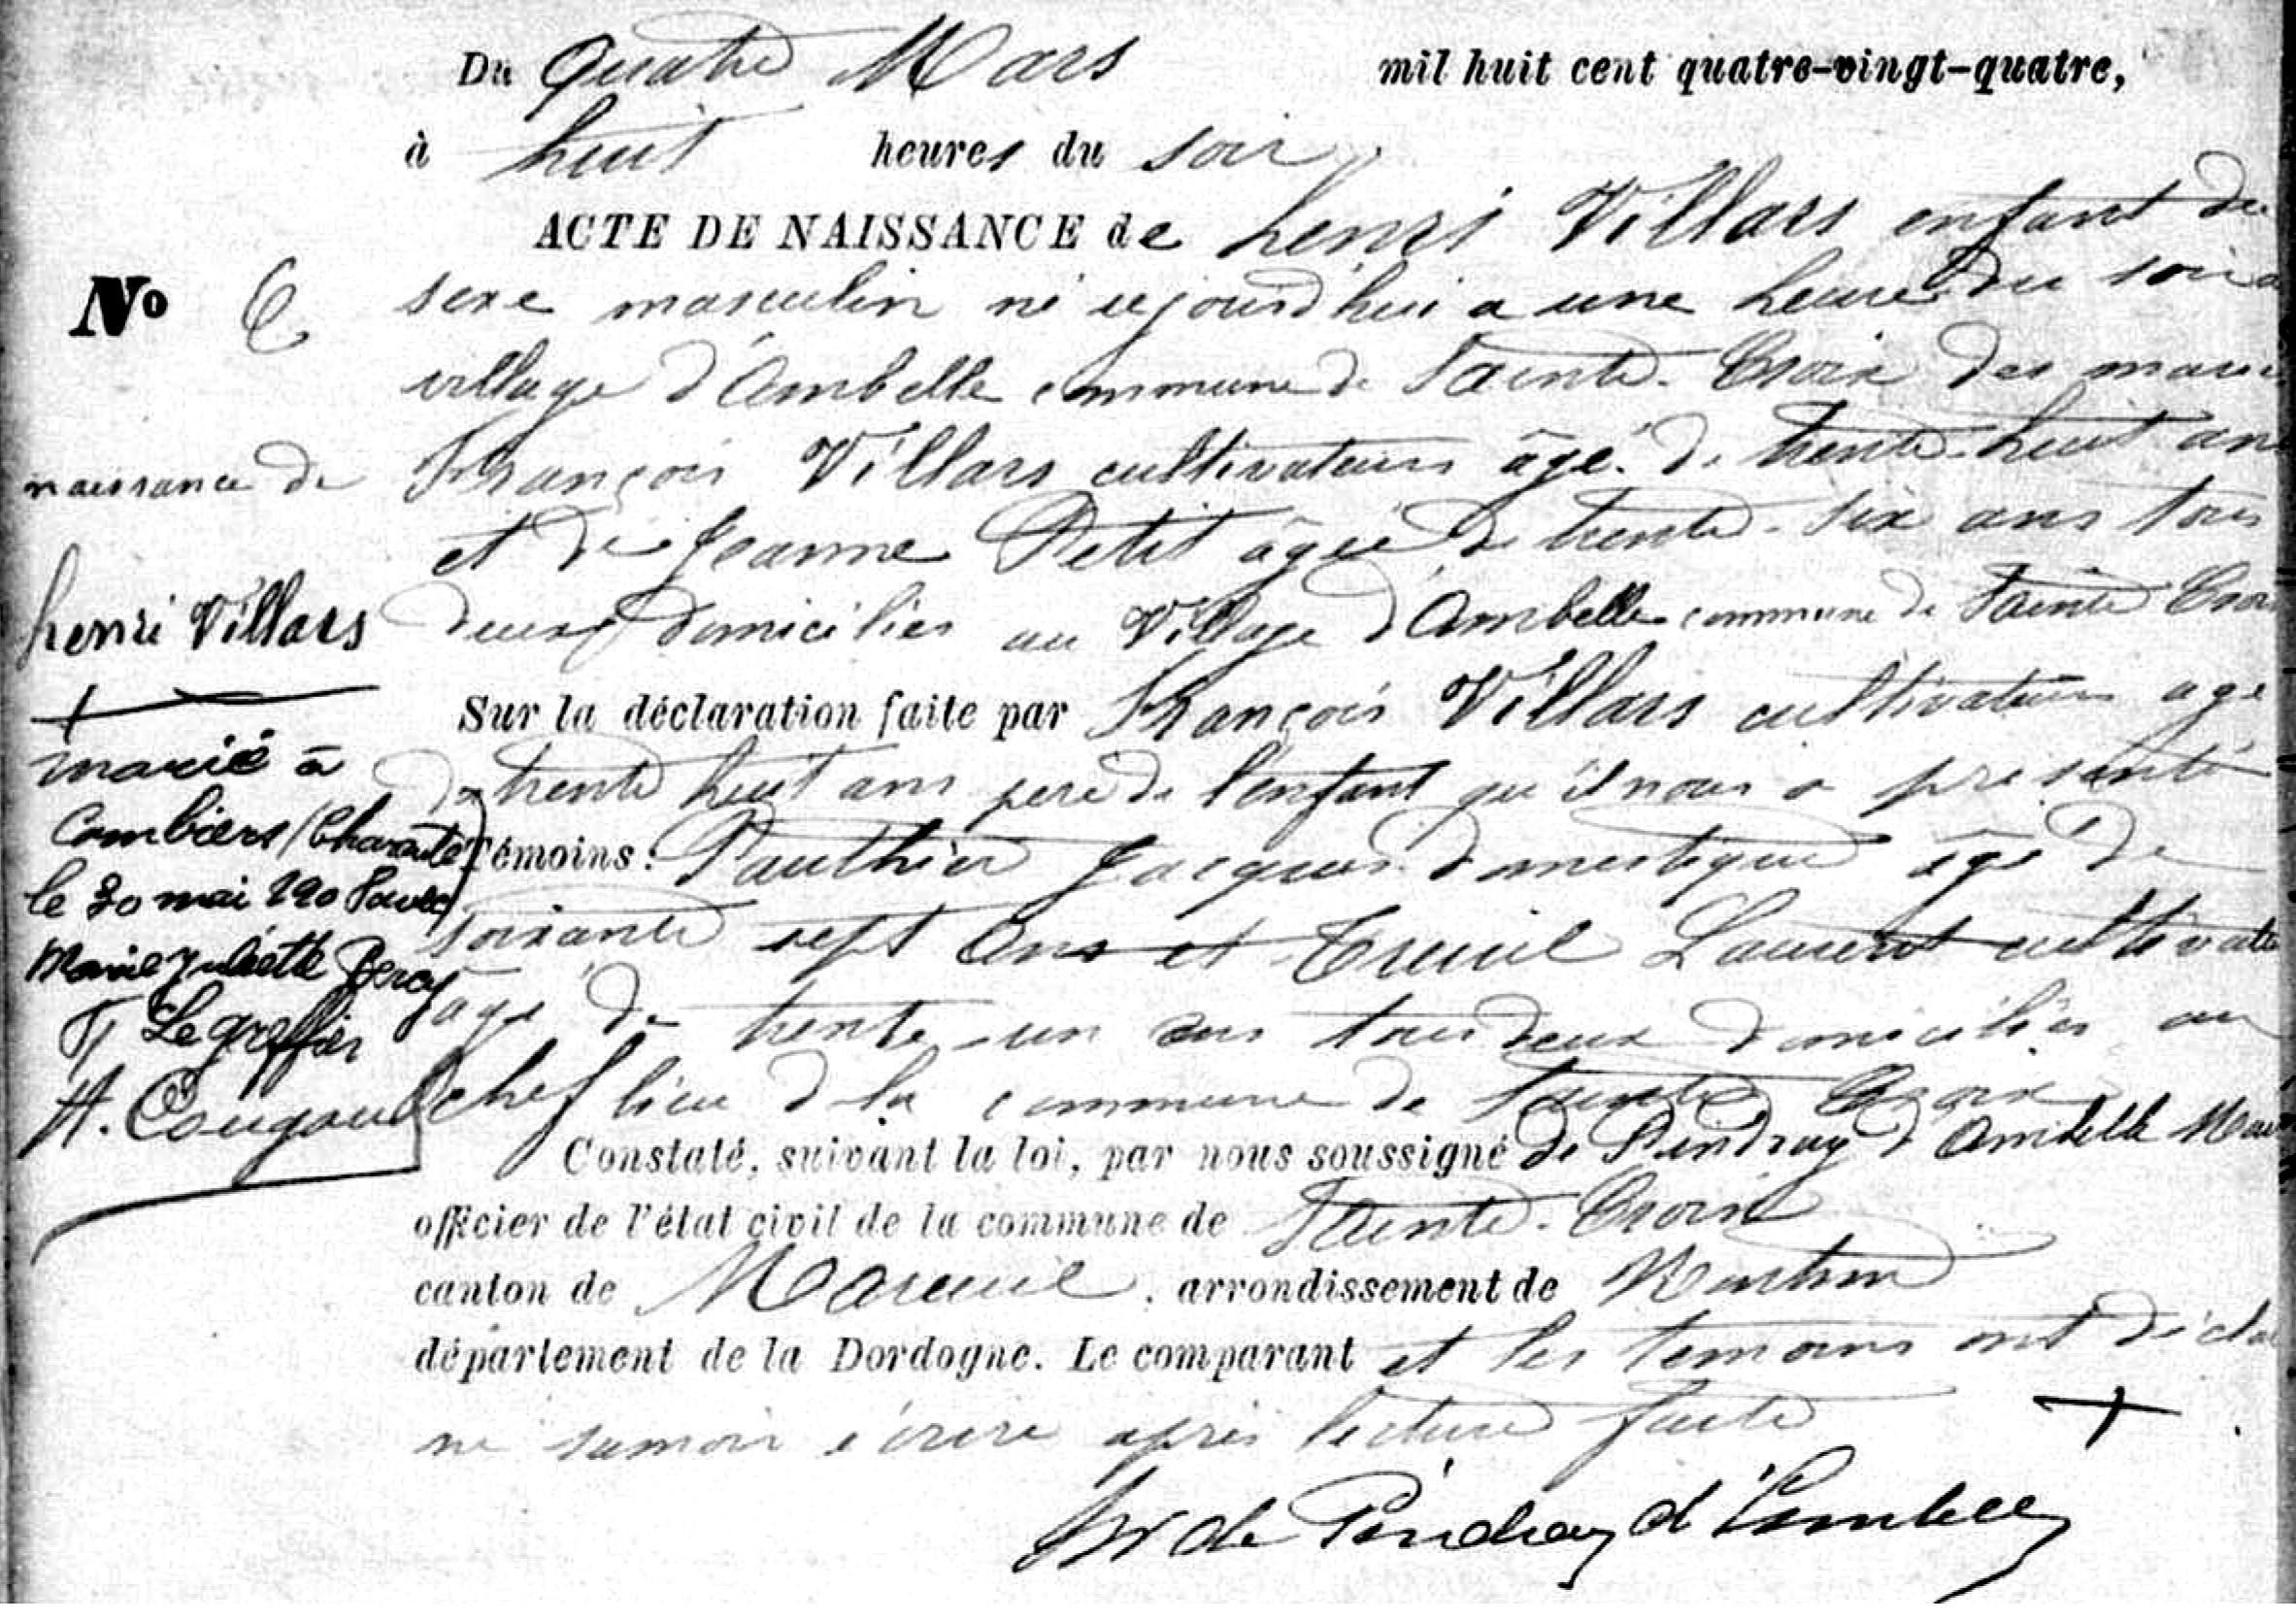 Du quatre Mars mil huit cent quatre-vingt-quatre,
à huit heures du soir
ACTE DE NAISSANCE de henri Villars enfant du
No 6
sexe masculin né cejourd'hui a une heure du soir a
village d'Ambelle commune de Sainte-Croix des
naissance de
François Villars cultivateur âgé de trente-huit an
et de Jeanne Petit âgée de trente-six ans tous
henri Villars
deux domiciliés au Village d'Ambelle commune de Sainte Croi
Sur la déclaration faite par François Villars cultivateur agé
de trente huit ans père de l'enfant qu'il nous a présenté
Témoins: Pauthier Jacques domestique âgé de
soixante sept ans et Treuil Laurent cultivate
âgé de trente-un ans tous deux domiciliés au
chef lieu d la commune de Sainte Croix
marié à
Combiers (Charente)
le 30 mai avec
Marie Juliette
Le greffier
Constaté, suivant la loi, par nous soussigné de Pindray d'Ambelle Mai
officier de l'état civil de la commune de Sainte-Croix
canton de Mareuil, arrondissement de Nontron
département de la Dordogne. Le comparant et les temoins ont décla
ne savoir écrire après lecture faite
de Pindray d'Ambelle